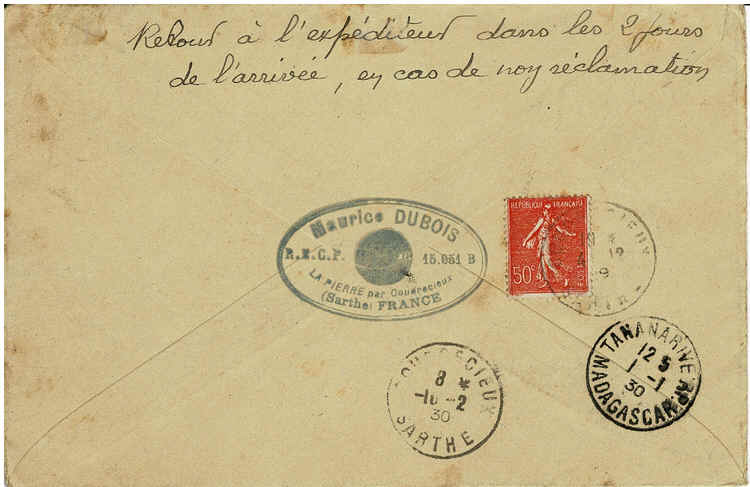 Retour à l'expéditeur dans les 2 jours
de l'arrivée, en cas de non réclamation
Maurice DUBOIS
15.951 B
LA PIERRE par Coudrecieux
(Sarthe) FRANCE
REPUBLIQUE FRANÇAISE
50c
12
9
COUDRECIEUX
8 *
-10 -2
30
SARTHE
TANANARIVE RP
12 5
1 -1
30
MADAGASCAR